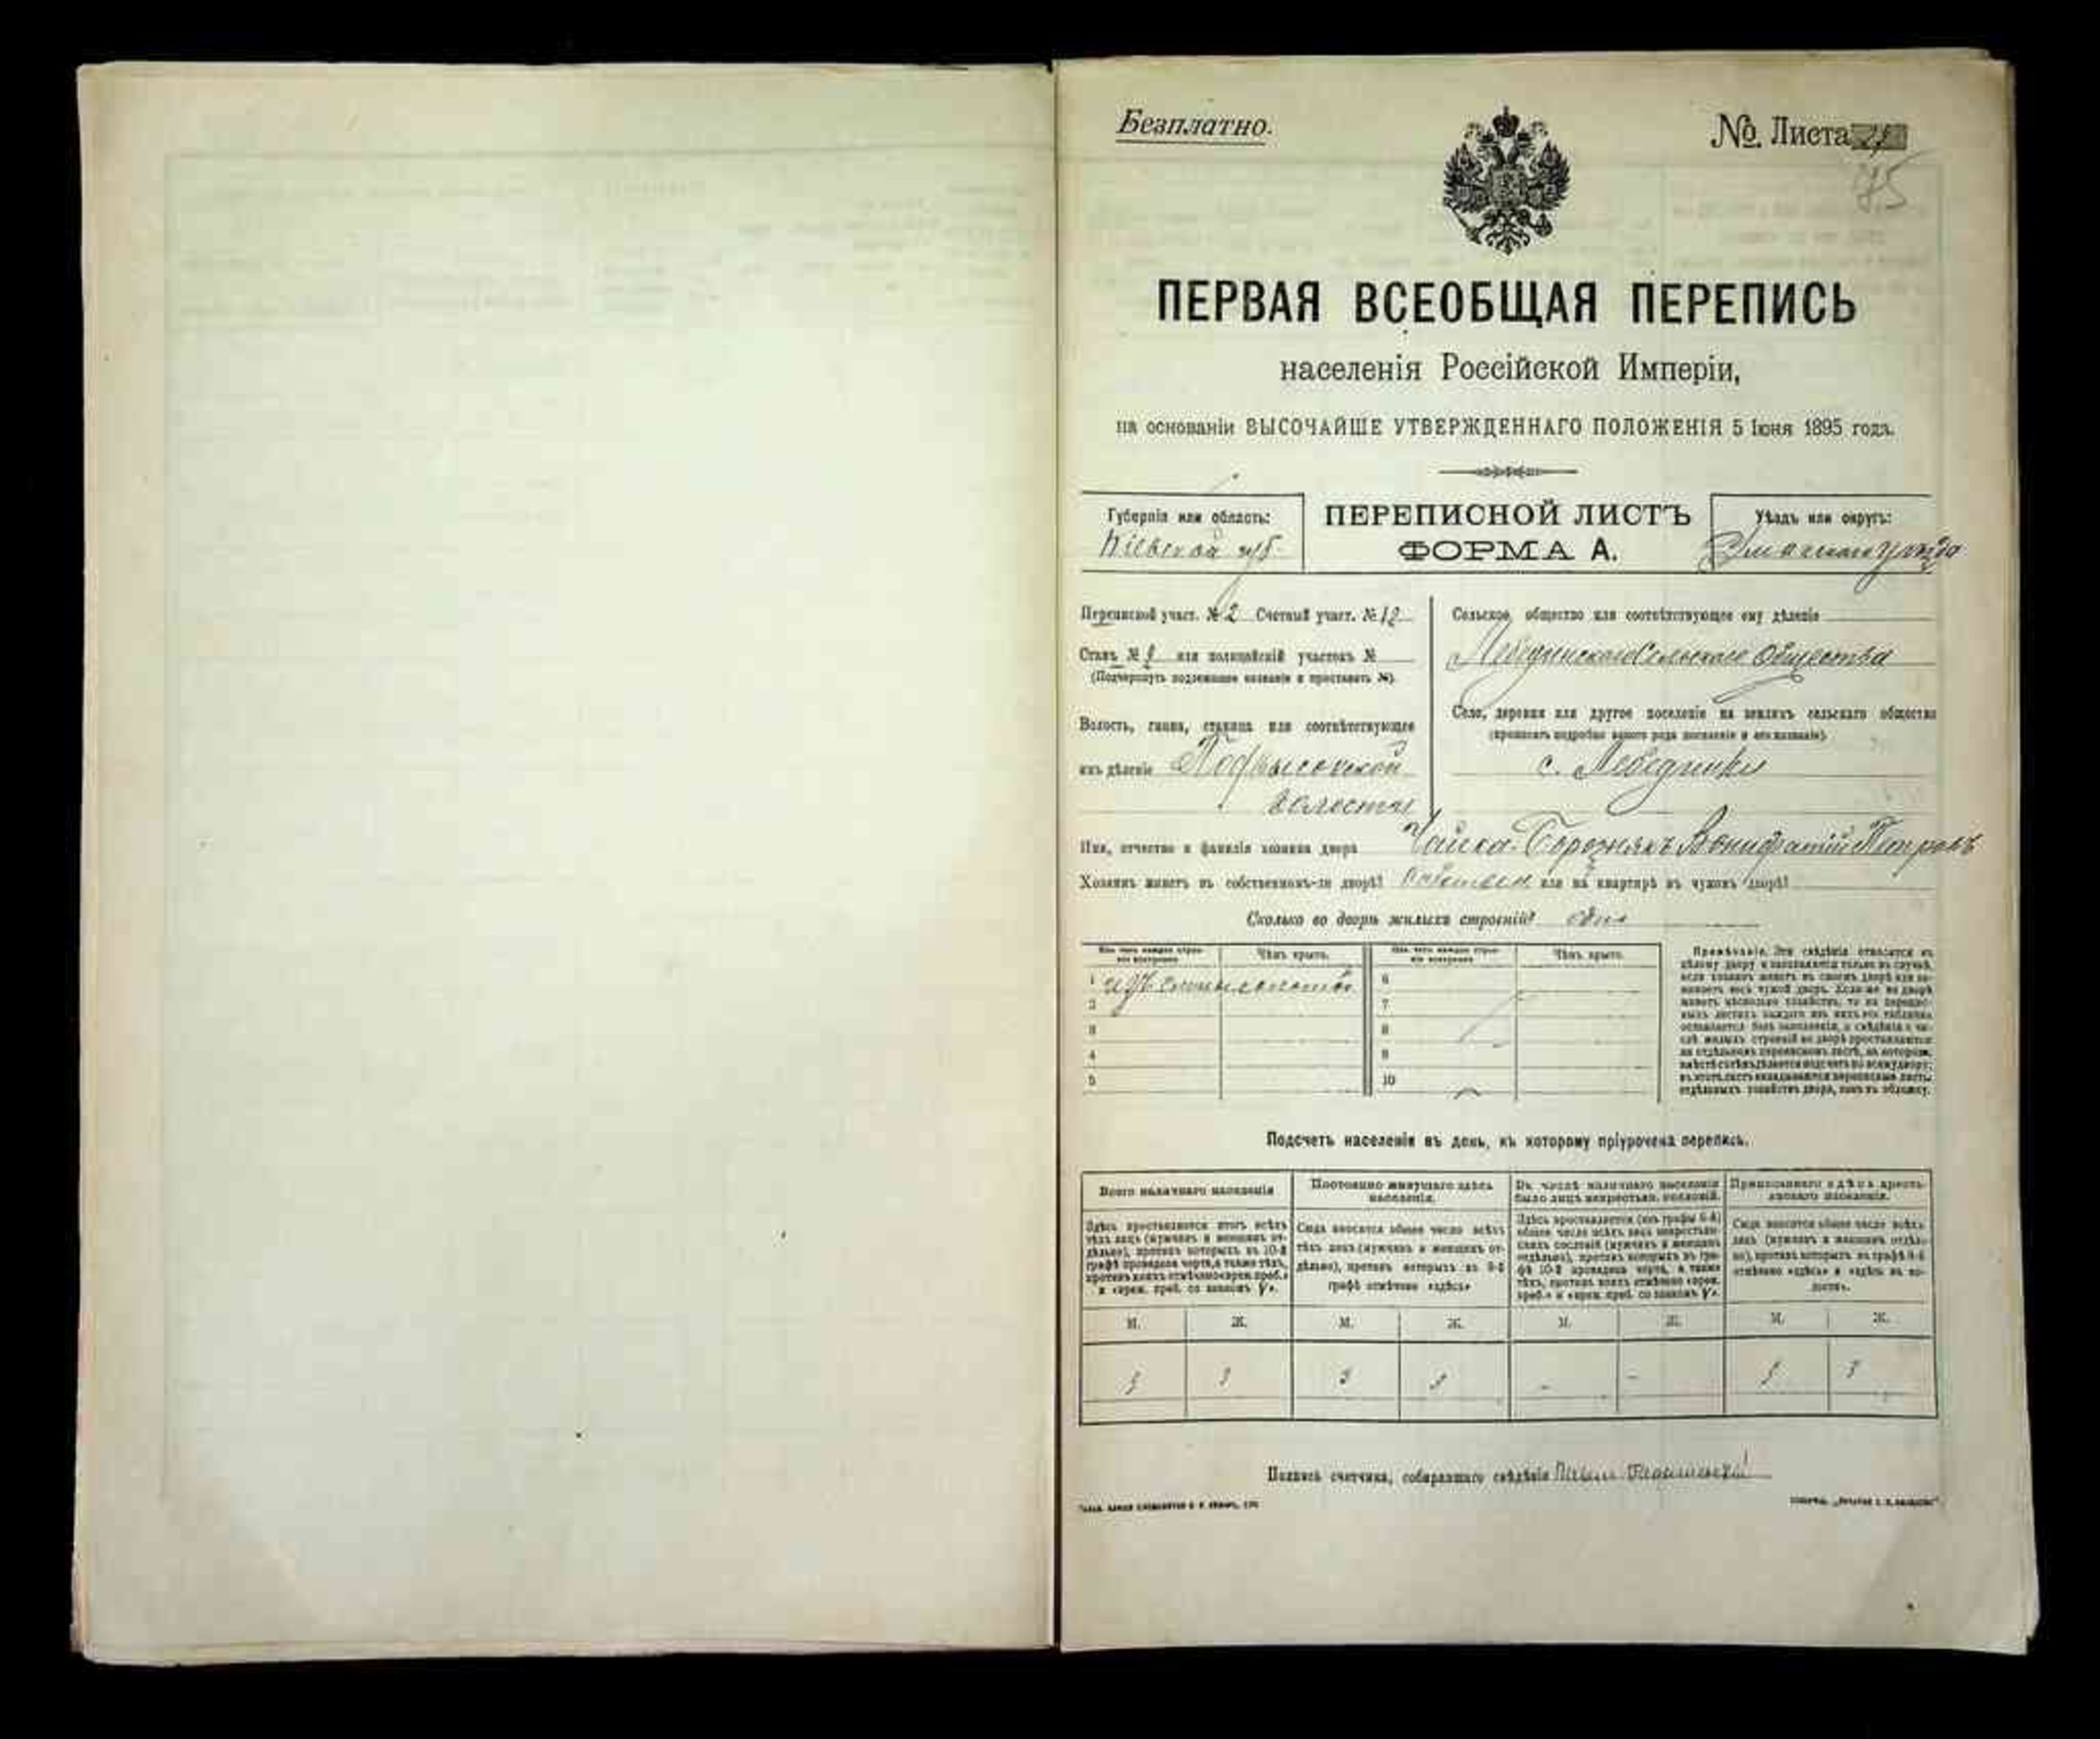 Безплатно.
№. Листа
75
ПЕРВАЯ ВСЕОБЩАЯ ПЕРЕПИСЬ
населенія Россійской Имперіи,
на основаніи ВЫСОЧАЙШЕ УТВЕРЖДЕННАГО ПОЛОЖЕНІЯ 5 Іюня 1895 года.
Губернія или область:
Кіевской губ.
ПЕРЕПИСНОЙ ЛИСТЪ
ФОРМА А.
Уѣздъ или округъ:
Уманскаго уѣзда
Переписной участ. № 2 Счетный участ. № 12
Станъ № 2 или полицейскій участокъ №
(Подчеркнуть подлежащее названіе и проставить №).
Волость, гмина, станица или соотвѣтствующее
имъ дѣленіе Подвысокской
волости
Сельское общество или соотвѣтствующее ему дѣленіе
Лебединскаго Сельскаго Общества
Село, деревня или другое поселеніе на земляхъ сельскаго общества
(прописать подробно какого рода поселеніе и его названіе).
с. Лебединки
Имя, отчество и фамилія хозяина двора Чайка Вонифатій Петровъ
Хозяинъ живетъ въ собственномъ-ли дворѣ? или на квартирѣ въ чужомъ дворѣ?
Сколько во дворѣ жилыхъ строеній? одно
Изъ чего каждое строеніе построено
Чѣмъ крыто.
Изъ чего каждое строеніе построено
Чѣмъ крыто.
1 изъ глины соломой
2
3
4
5
6
7
8
9
10
Примѣчаніе. Эти свѣдѣнія относятся къ
цѣлому двору и заполняются только въ случаѣ,
если хозяинъ живетъ въ своемъ дворѣ или занимаетъ
весь чужой дворъ. Если же во дворѣ
живетъ нѣсколько хозяйствъ, то на переписныхъ
листахъ каждаго изъ нихъ эта табличка
оставляется безъ заполненія, а свѣдѣнія о числѣ
жилыхъ строеній во дворѣ проставляются
на отдѣльномъ переписномъ листѣ, на которомъ
вмѣстѣ съ тѣмъ дѣлается подсчетъ по всему двору;
въ этотъ листъ вкладываются переписные листы
отдѣльныхъ хозяйствъ двора, какъ въ обложку.
Подсчетъ населенія въ день, къ которому пріурочена перепись.
Всего наличнаго населенія
Постоянно живущаго здѣсь населенія.
Въ числѣ наличнаго населенія было лицъ некрестьян. сословій.
Приписаннаго здѣсь крестьянскаго населенія.
Здѣсь проставляется итогъ всѣхъ
тѣхъ лицъ (мужчинъ и женщинъ отдѣльно),
противъ которыхъ въ 10-й
графѣ проведена черта, а также тѣхъ,
противъ коихъ отмѣчено «врем. преб.»
и «врем. преб. со знакомъ V».
Сюда вносится общее число всѣхъ
тѣхъ лицъ (мужчинъ и женщинъ отдѣльно),
противъ которыхъ въ 9-й
графѣ отмѣчено «здѣсь»
Здѣсь проставляется (изъ графы 6-й)
общее число всѣхъ лицъ некрестьянскихъ
сословій (мужчинъ и женщинъ
отдѣльно), противъ которыхъ въ графѣ
10-й проведена черта, а также
тѣхъ, противъ коихъ отмѣчено «врем.
преб.» и «врем. преб. со знакомъ V».
Сюда вносится общее число всѣхъ
лицъ (мужчинъ и женщинъ отдѣльно),
противъ которыхъ въ графѣ 8-й
отмѣчено «здѣсь» и «здѣсь въ волости».
М. Ж. М. Ж. М. Ж. М. Ж.
3 3 3 3 - - 3 3
Подпись счетчика, собиравшаго свѣдѣнія